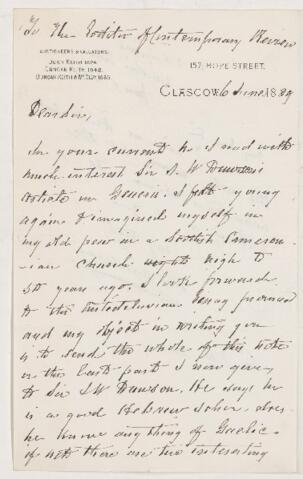 To The Editor Contemporary Review
AUCTIONEERS & VALUATORS.
157, HOPE STREET.
GLASGOW, 6 June 1889
Dear Sir,
In your current no I read with
much interest Sir J. W Dawson's
article on Genesis. I felt young
again & imagined myself in
my old pew in a Scottish Cameron-
-ian church nigh to
50 years ago. I look forward
to the Antediluvian being
and my object in writing you
is to send the whole of this note
or the last part I now give
to Sir J W Dawson. He says he
is a good Hebrew scholar, does
he know anything of Gaelic.
if not there are two interesting